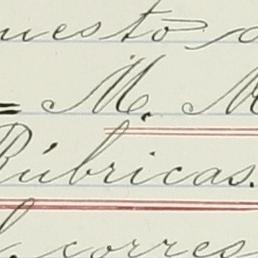 uesto
= M. M
Rúbricas.
corres